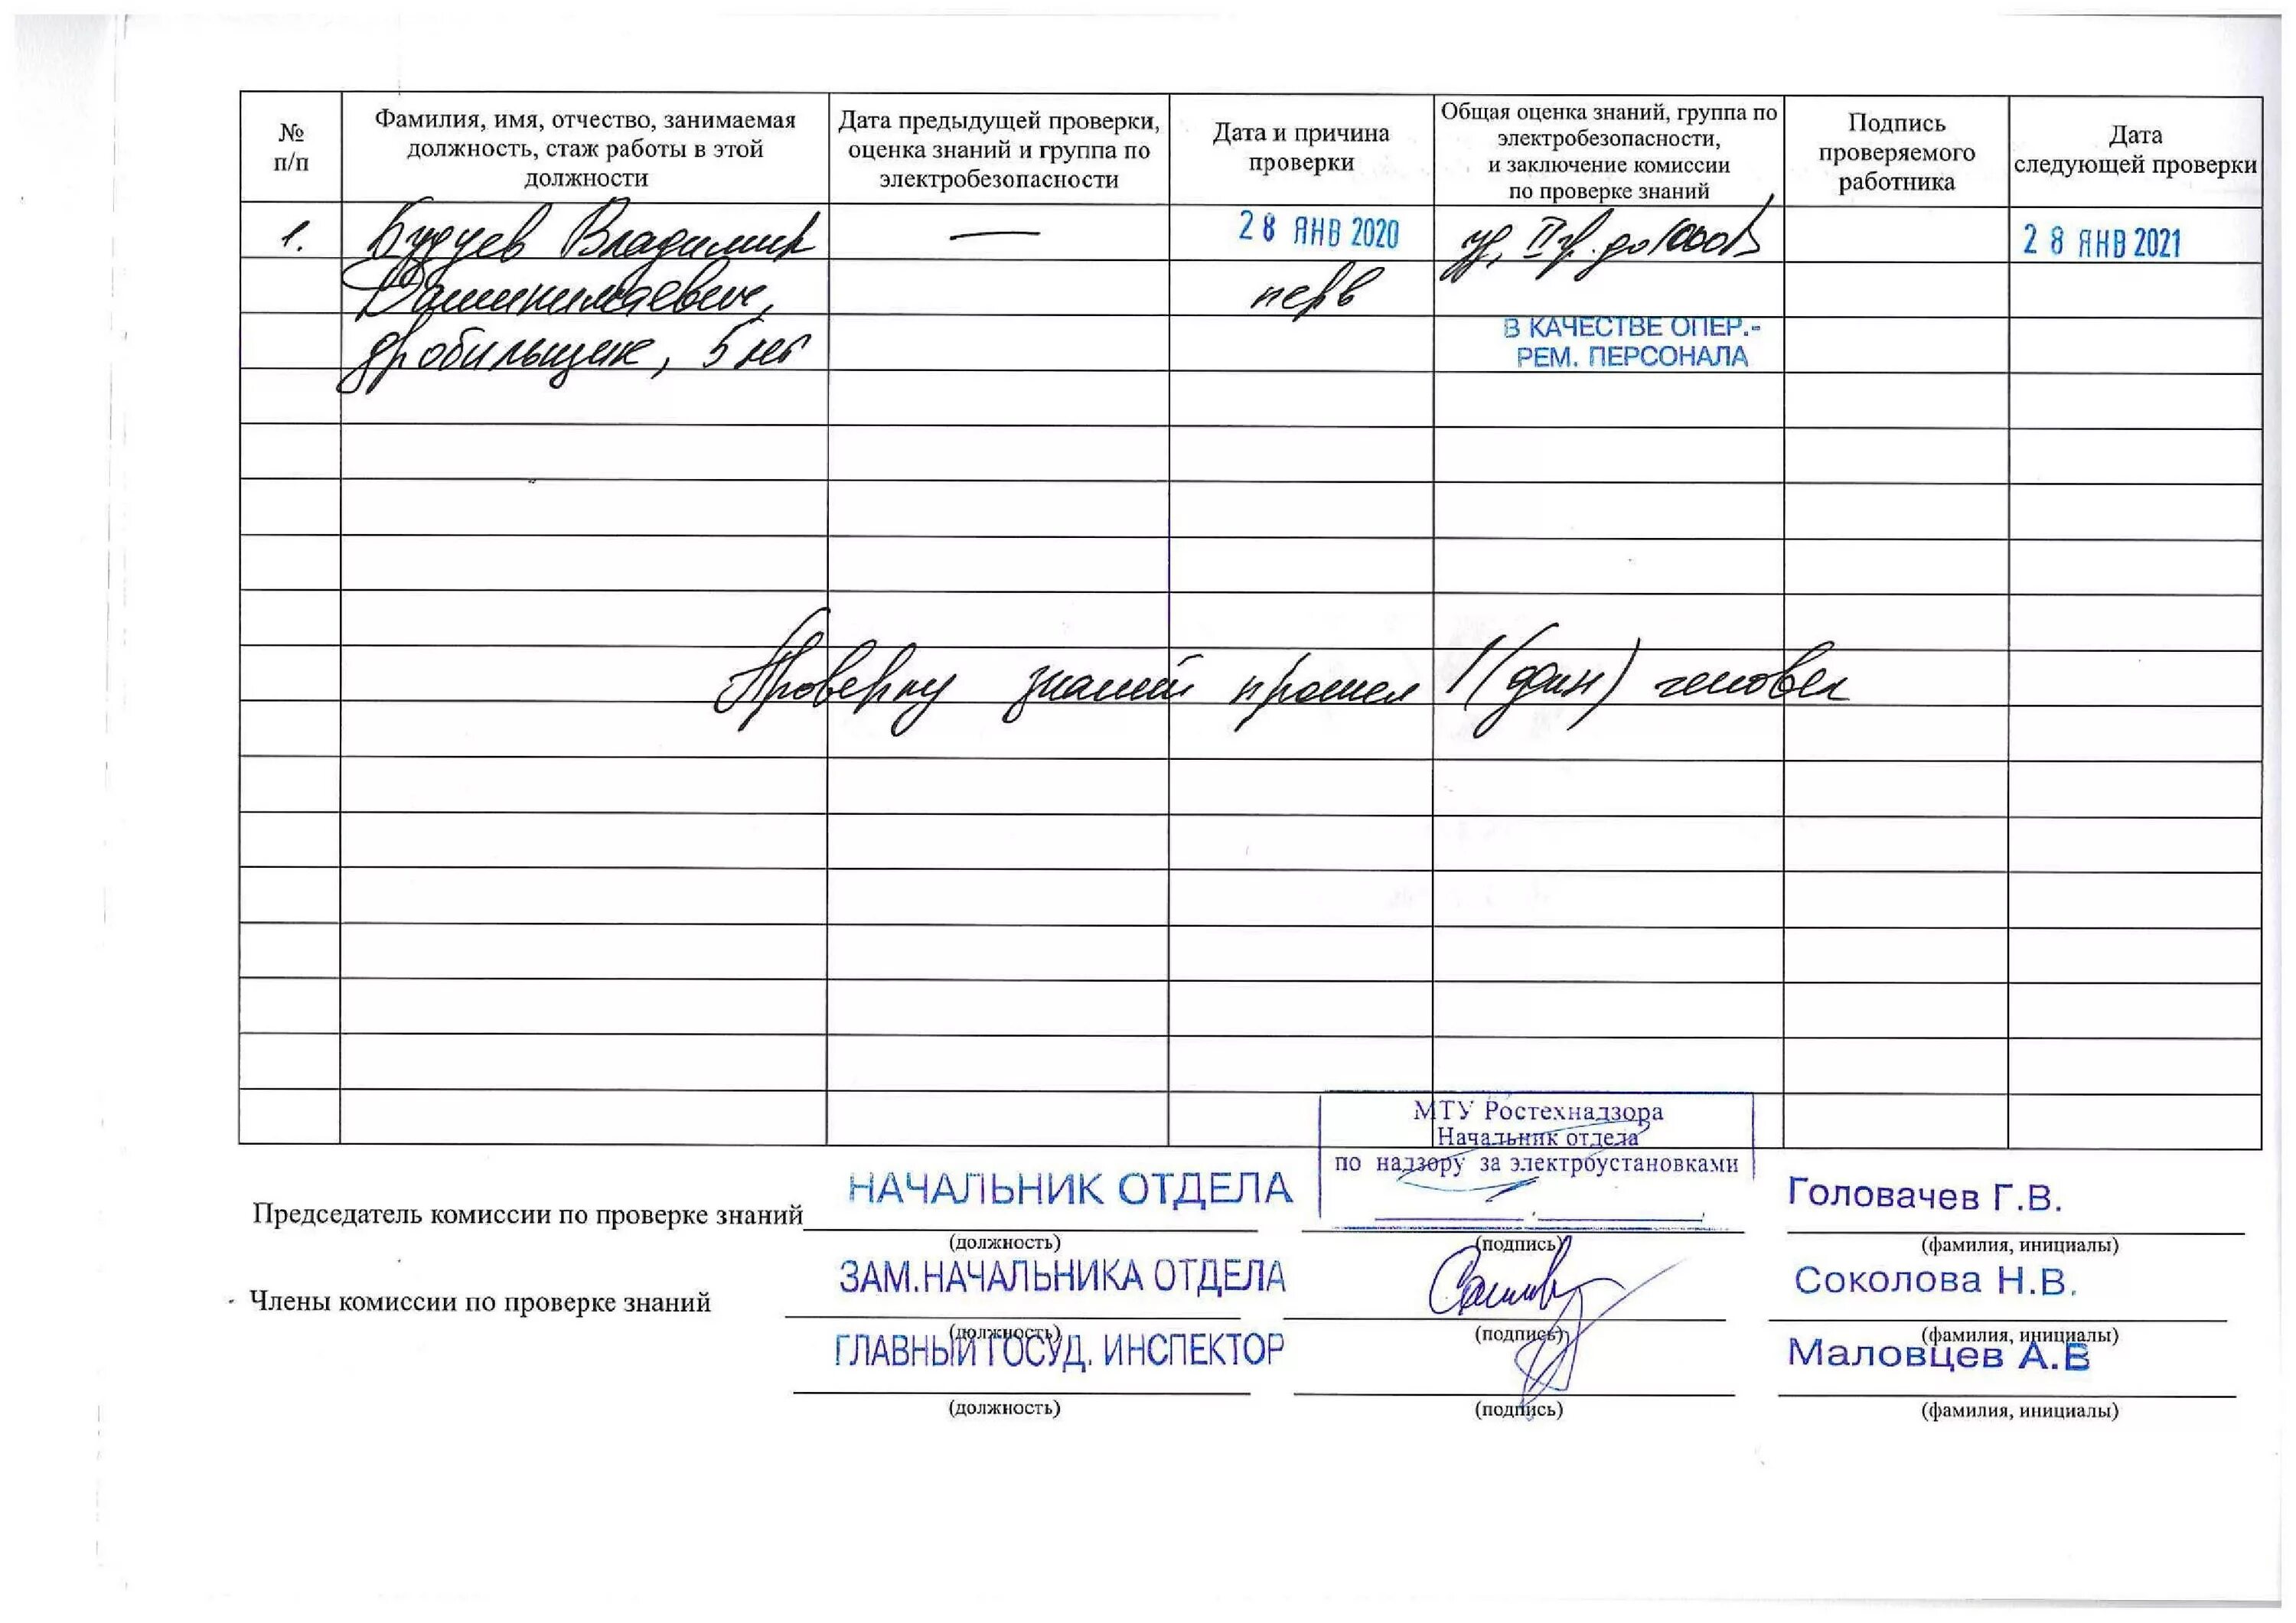 № п/п
Фамилия, имя, отчество, занимаемая должность, стаж работы в этой должности
Дата предыдущей проверки, оценка знаний и группа по электробезопасности
Дата и причина проверки
Общая оценка знаний, группа по электробезопасности, и заключение комиссии по проверке знаний
Подпись проверяемого работника
Дата следующей проверки
1. Будуев Владимир — 28 ЯНВ 2020 уд, II гр. до 1000В 28 ЯНВ 2021
перв
дробильщик, 5 лет
В КАЧЕСТВЕ ОПЕР.-
РЕМ. ПЕРСОНАЛА
Проверку знаний прошел 1 (один) человек
МТУ Ростехнадзора
Начальник отдела
по надзору за электроустановками
Председатель комиссии по проверке знаний НАЧАЛЬНИК ОТДЕЛА Головачев Г.В.
(должность) (подпись) (фамилия, инициалы)
Члены комиссии по проверке знаний ЗАМ.НАЧАЛЬНИКА ОТДЕЛА Соколова Н.В.
(должность) (подпись) (фамилия, инициалы)
ГЛАВНЫЙ ГОСУД. ИНСПЕКТОР Маловцев А.В
(должность) (подпись) (фамилия, инициалы)